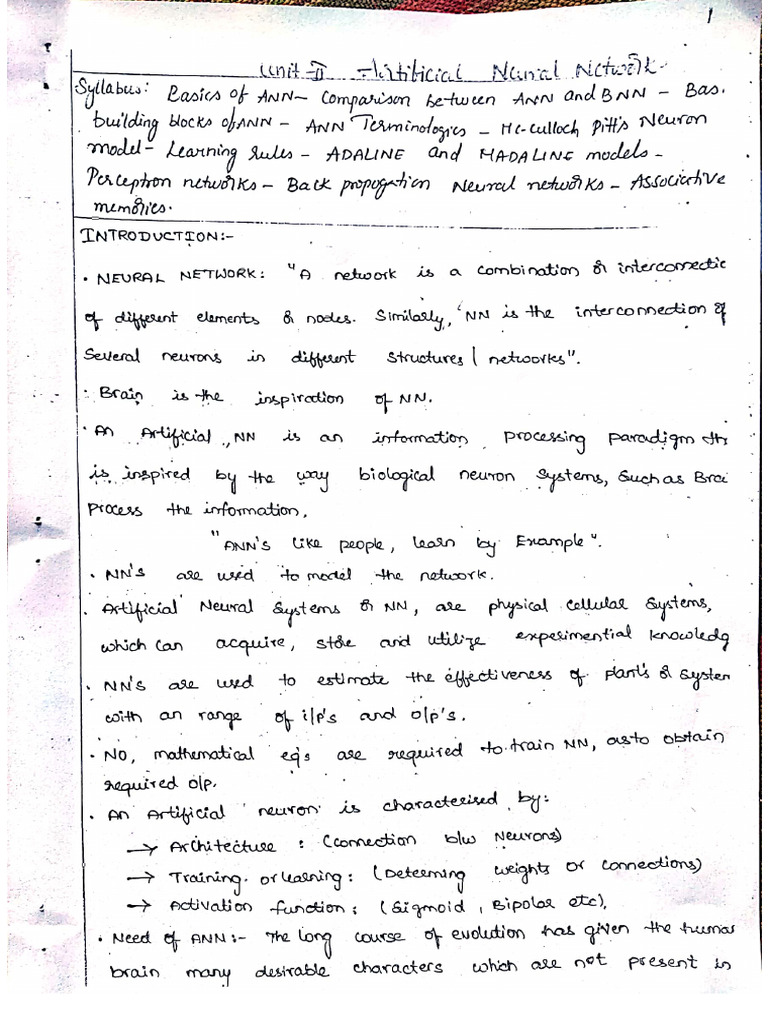 1
Unit-II Artificial Neural Network
Syllabus: Basics of ANN- Comparison between ANN and BNN - Bas.
building blocks of ANN - ANN Terminologies - Mc-culloch Pitt's Neuron
model- Learning rules - ADALINE and MADALINE models-
Perceptron networks - Back propogation Neural networks - Associative
memories.
INTRODUCTION:-
• NEURAL NETWORK: "A network is a combination or interconnectio
of different elements or nodes. Similarly, 'NN is the interconnection of
Several neurons in different structures / networks".
• Brain is the inspiration of NN.
• An Artificial NN is an information processing paradigm th
is inspired by the way biological neuron systems, such as Brai
Process the information.
"ANN's like people, learn by Example".
• NN's are used to model the network.
• Artificial Neural Systems or NN, are physical cellular systems,
which can acquire, store and utilize experimential knowledg
• NN's are used to estimate the effectiveness of plant's or System
with an range of i/p's and o/p's.
• NO, mathematical eq's are required to train NN, as to obtain
required o/p.
• An Artificial neuron is characterised by:
→ Architecture : (connection b/w Neurons)
→ Training. or learning: (Determing weights or connections)
→ Activation function: (Sigmoid, Bipolar etc),
• Need of ANN:- The long course of evolution has given the human
brain many desirable characters which are not present in